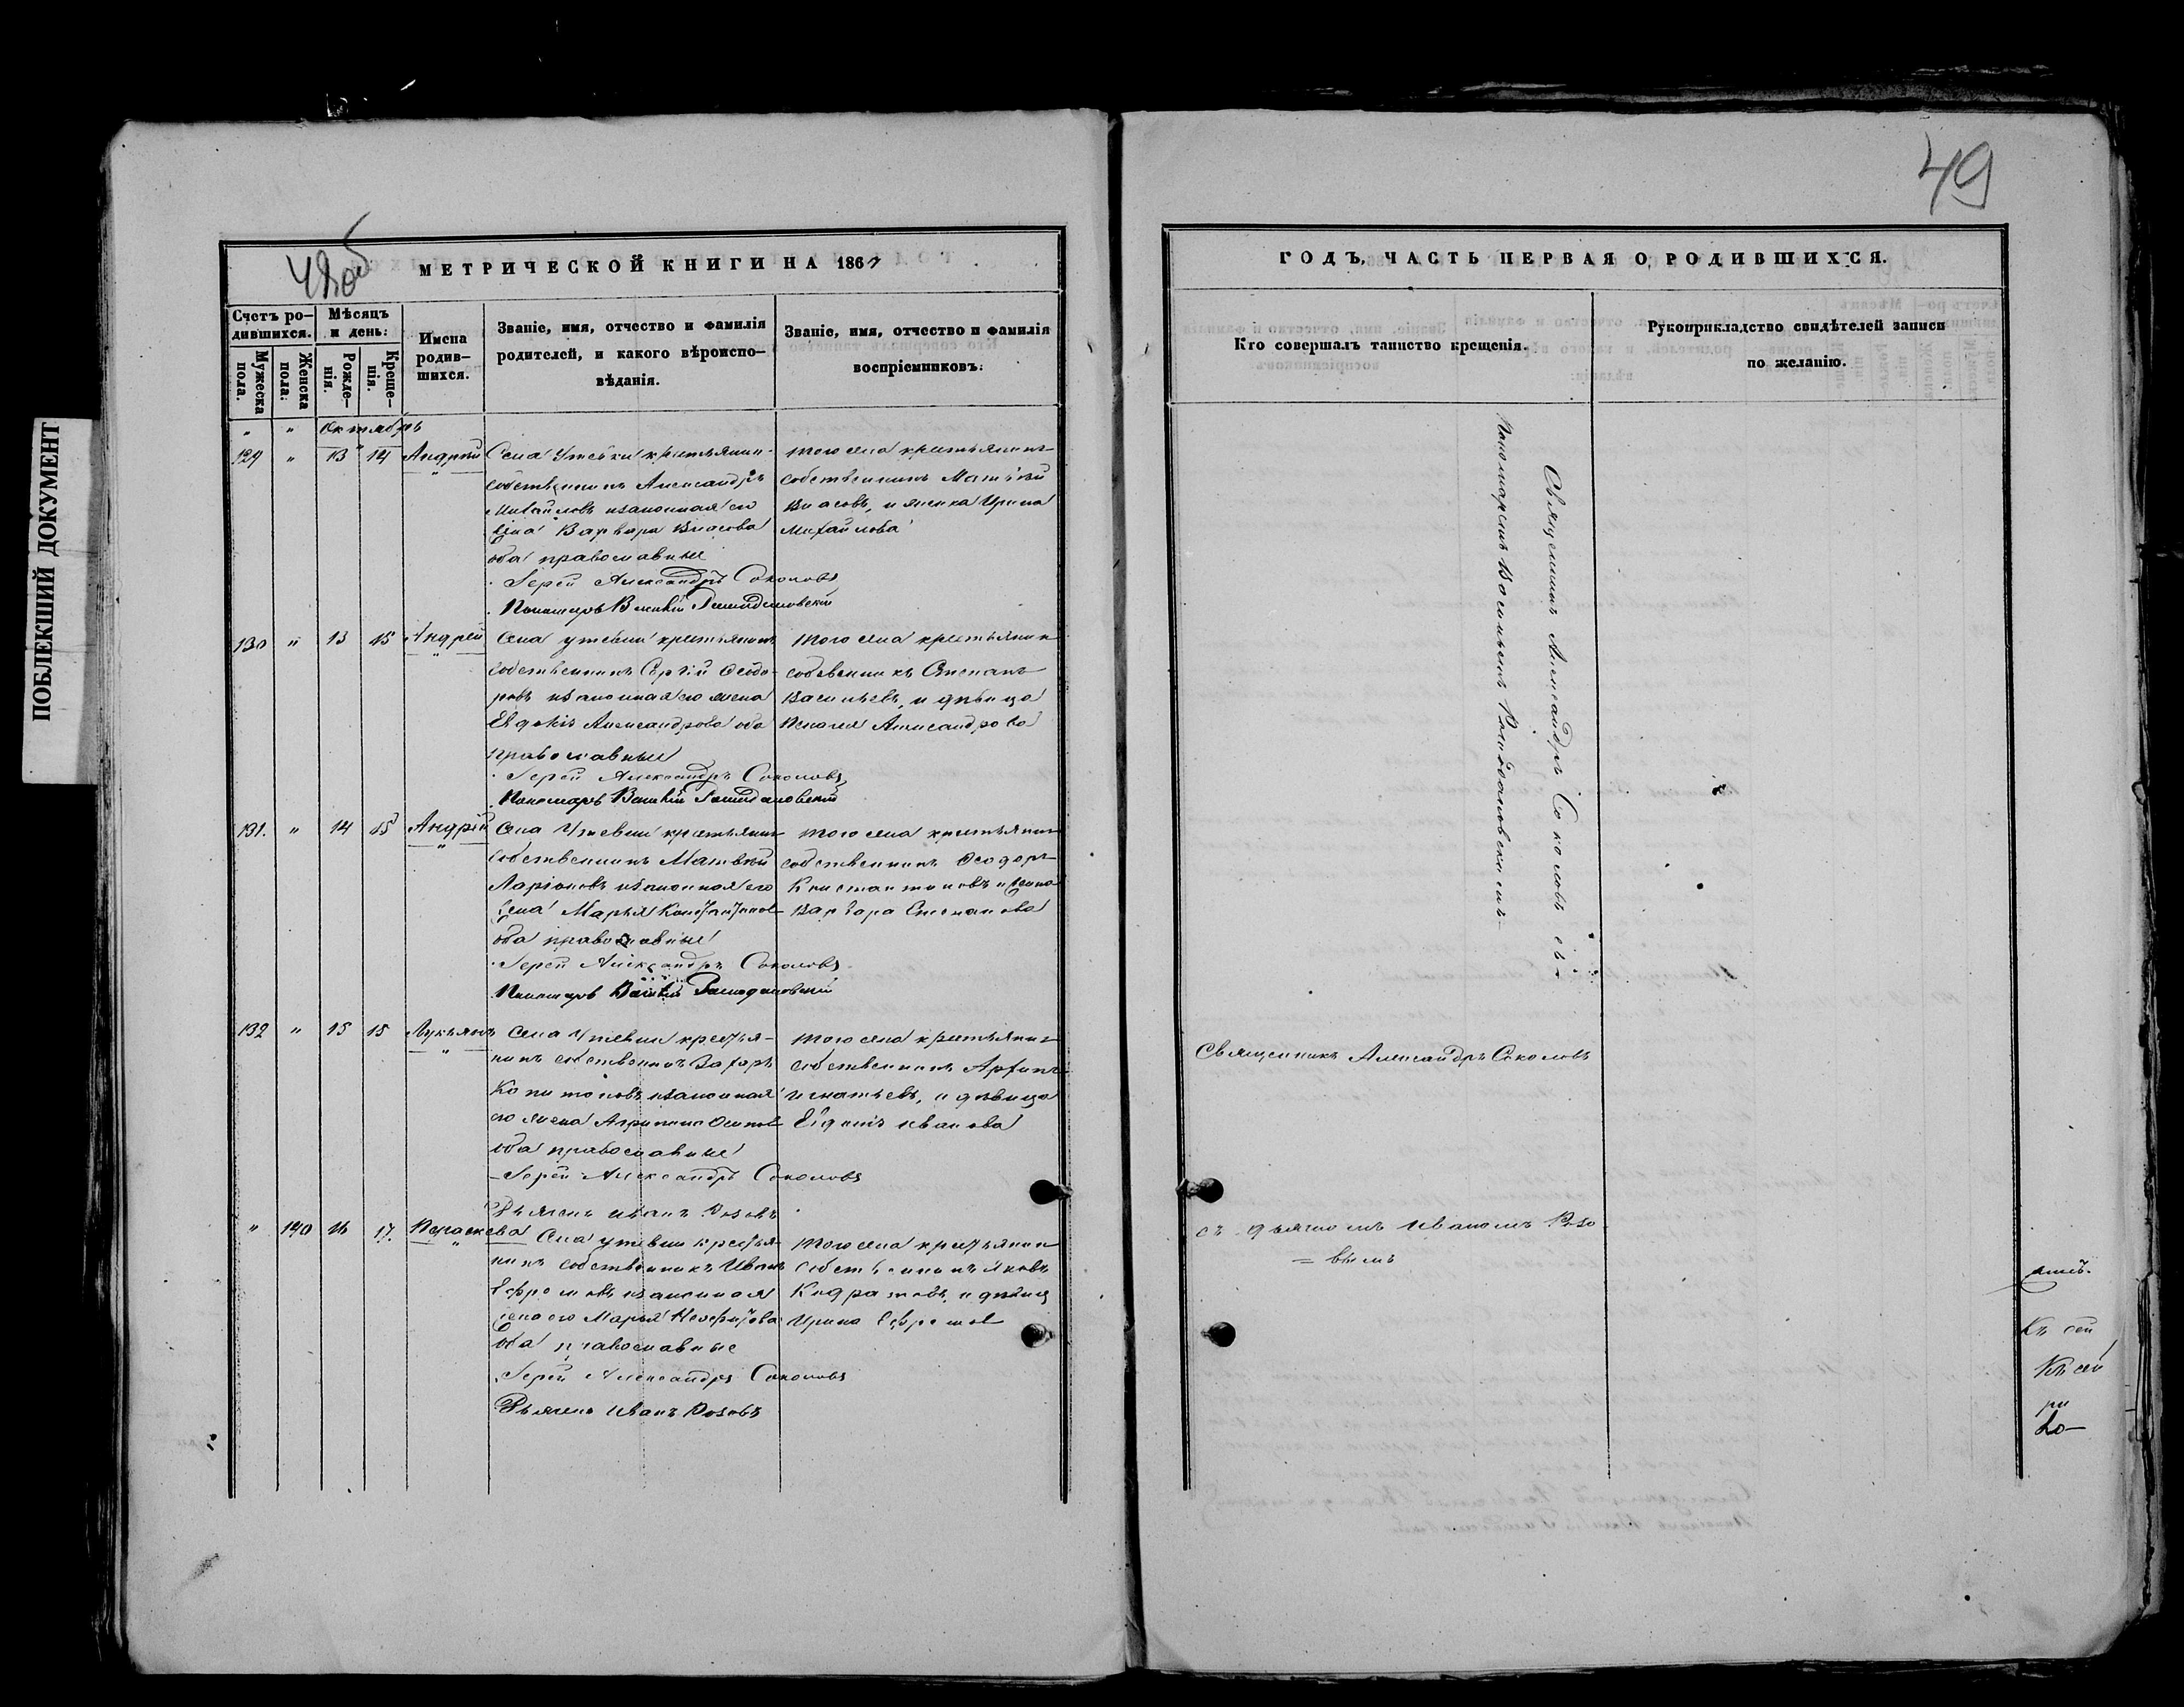 ПОБЛЕКШИЙ ДОКУМЕНТ
48об
МЕТРИЧЕСКОЙ КНИГИ НА 1867
Счетъ ро-
дившихся.
Мѣсяцъ
и день:
Мужеска
пола.
Женска
пола.
Рожде-
нія.
Креще-
нія.
Имена
родив-
шихся.
Званіе, имя, отчество и фамилія
родителей, и какого вѣроиспо-
вѣданія.
Званіе, имя, отчество и фамилія
воспріемниковъ.
" " Октябрь
129 " 13 14 Андрей
Села Утевки крестьянин
собственникъ Александръ
Михайловъ изаконная его
жена Варвара Власова
оба православные
Іерей Александръ Соколовъ
Пономарь Василій Рамидановскій
того села крестьянинъ
собственникъ Матвѣй
Власовъ, и женка Ирина
Михайлова
130 " 13 15 Андрей
Села утевки крестьянинъ
собственникъ Сергѣй Ѳеодо-
ровъ изаконная его жена
Евдокія Александрова оба
православные
Іерей Александръ Соколовъ
Пономарь Василій
того села крестьянин
собсвенникъ Степанъ
Васильевъ, и дѣвица
Пелагея Александрова
131. " 14 15 Андрей
Села Утевки крестьянинъ
собственникъ Матвѣй
Ларіоновъ изаконная его
жена Марья Константинов
оба православные
Іерей Александръ Соколовъ
Пономарь Василій
того села крестьянин
собственникъ Ѳеодоръ
Константиновъ и женка
Варвара Степанова
132 " 15 15 Лукьянъ
Села Утевки крестья-
нинъ собственникъ Захаръ
Капитоновъ изаконная
его жена Агрипина Осипов
оба православные
Іерей Александръ Соколовъ
Дьячекъ Иванъ Розовъ
того села крестьянин
собственникъ Архипъ
Игнатьевъ, и дѣвица
Евдокія Иванова
" 140 16 17. Параскева
Села утевки крестья-
нинъ собственникъ Иванъ
Ефремовъ изаконная
жена его Марья
оба православные
Іерей Александръ Соколовъ
Дьячекъ Иванъ Розовъ
того села крестьянин
собственникъ Яковъ
Кодратовъ, и дѣвица
Ирина Ефремов
49
ГОДЪ, ЧАСТЬ ПЕРВАЯ О РОДИВШИХСЯ.
Кто совершалъ таинство крещенія.
Рукоприкладство свидѣтелей записи
по желанію.
Священникъ Александръ Соколовъ съ
Пономаремъ Васильемъ
Священникъ Александръ Соколовъ
съ дьячкомъ Иваномъ Розо
= вымъ
Къ сей
Къ сей